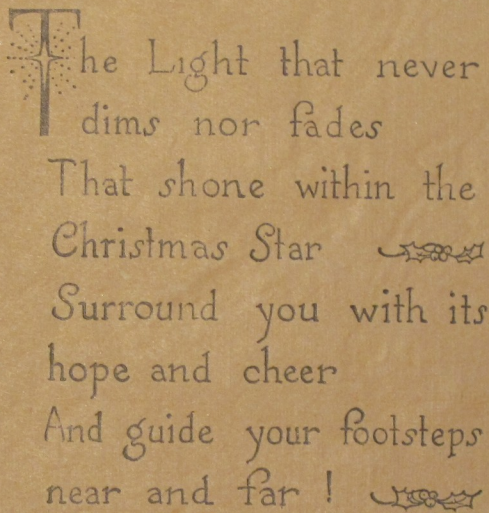 The Light that never
dims nor fades
That shone within the
Christmas Star
Surround you with its
hope and cheer
And guide your footsteps
near and far !